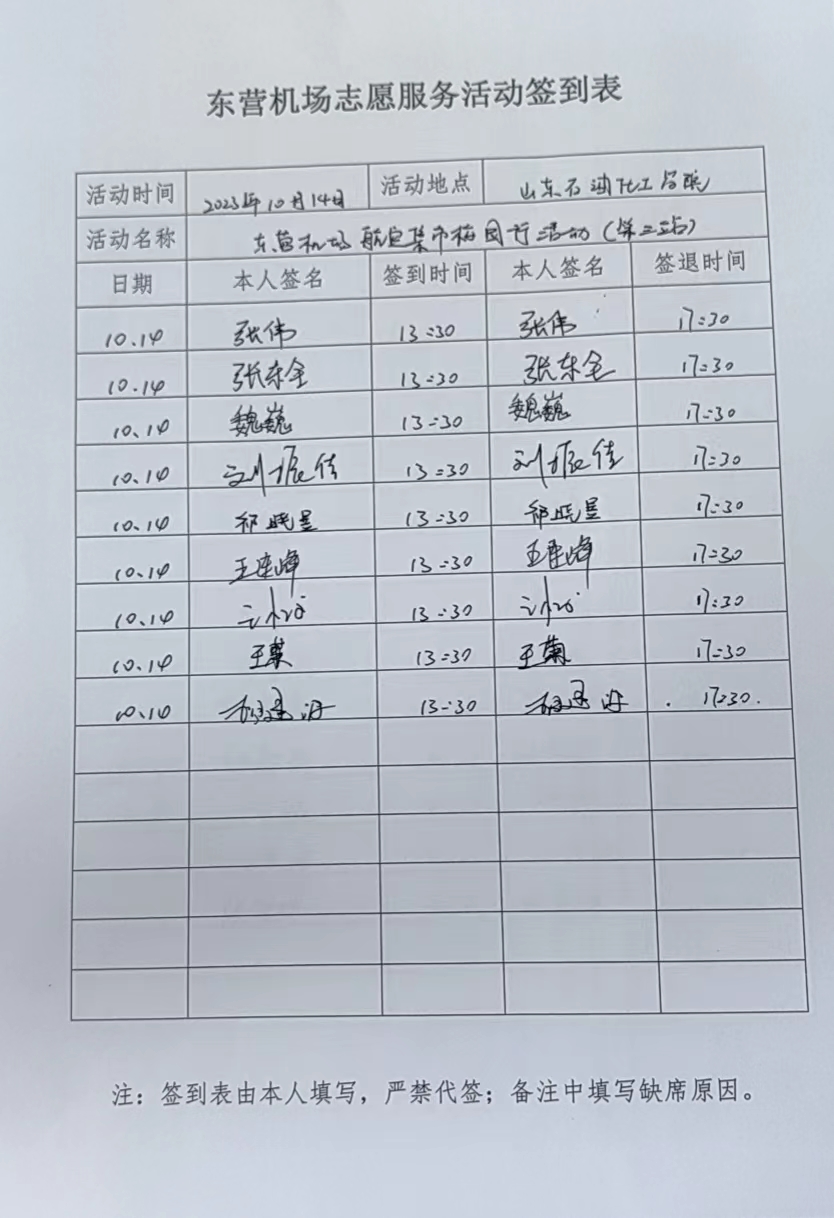 东营机场志愿服务活动签到表
活动时间 2023年10月14日 活动地点 山东石油化工学院
活动名称 东营机场航空集市校园行活动(第三站)
日期 本人签名 签到时间 本人签名 签退时间
10.14 张伟 13:30 张伟 17:30
10.14 张东全 13:30 张东全 17:30
10.14 魏巍 13:30 魏巍 17:30
10.14 刘振佳 13:30 刘振佳 17:30
10.14 祁晓星 13:30 祁晓星 17:30
10.14 王连峰 13:30 王连峰 17:30
10.14 13:30 17:30
10.14 王菊 13:30 王菊 17:30
10.14 13:30 17:30.
注：签到表由本人填写，严禁代签；备注中填写缺席原因。